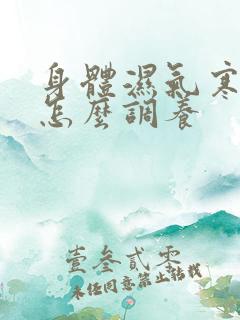 身體濕氣寒
怎麼調養
壹叁貳零
未経同意禁止轉載